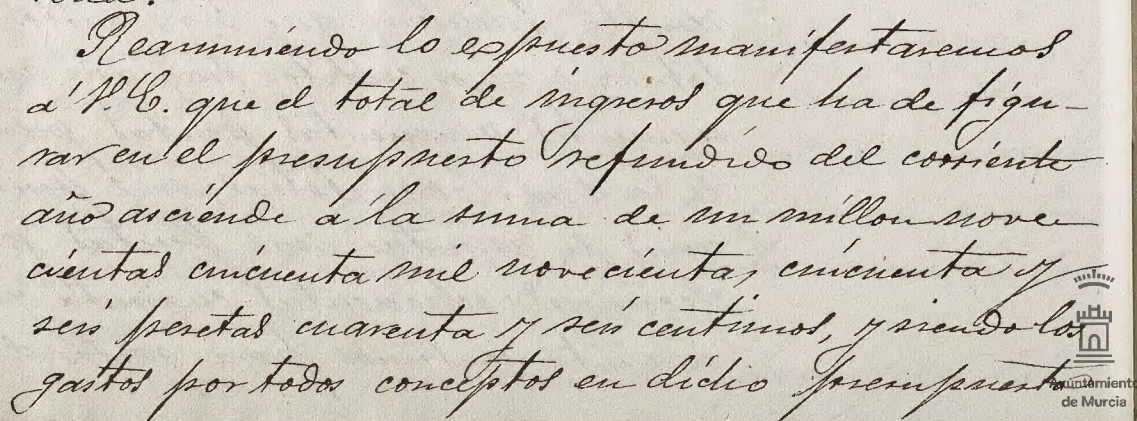 Reasumiendo lo expuesto manifestaremos
á V.E. que el total de ingresos que ha de figu-
rar en el presupuesto refundido del corriente
año asciende á la suma de un millon nove-
cientas cincuenta mil novecientas cincuenta y
seis pesetas cuarenta y seis centimos, y siendo los
gastos por todos conceptos en dicho presupuesto
Ayuntamiento
de Murcia